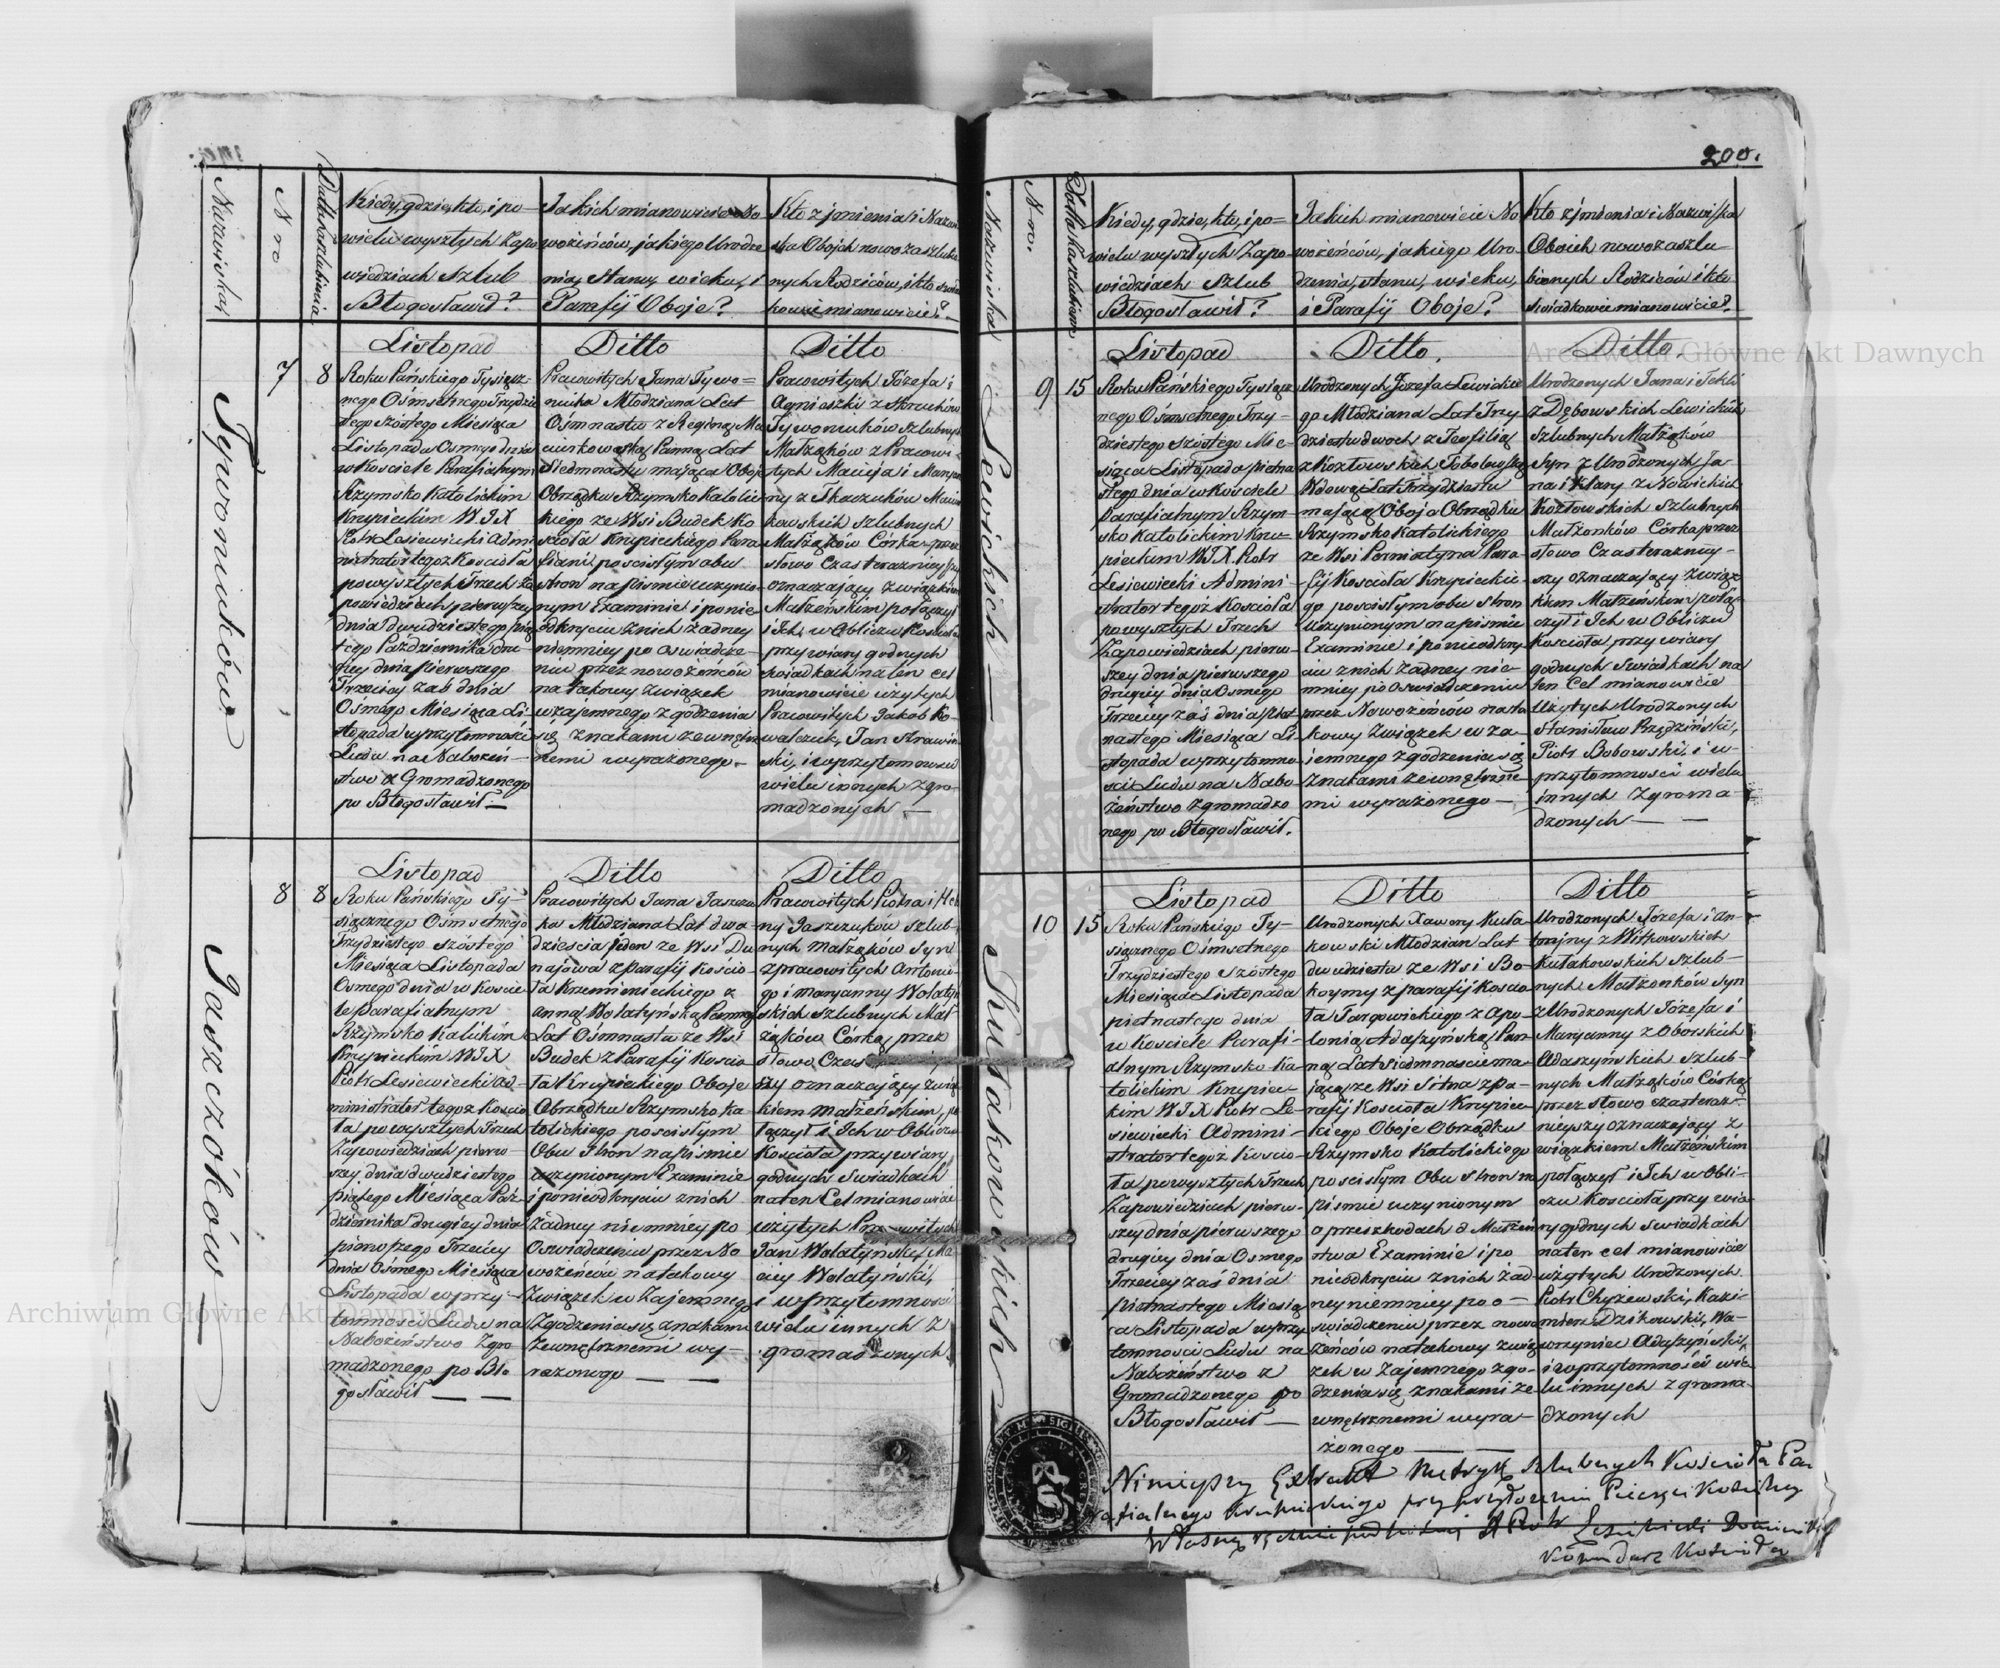 200.
Nazwiska
Nro
Data poszlubienia
Kiedy, gdzie, kto, i po
wielu wyszłych Zapo
wiedziach Szlub
Błogosławił?
Jakich mianowicie No
wożeńców, jakiego Urodze
nia, Stanu, wieku, i
Parafij Oboje?
Kto z jmienia i Nazwi
ska Obojch nowo zaszlubio
nych Rodziców, i kto świad
kowie mianowicie?
Tywoniuków
7
8
Listopad
Roku Pańskiego Tysiącz-
nego Ośmsetnego Trzydzie
stego szóstego Miesiąca
Listopada Osmego dnia
w Kościele Parafialnym
Rzymsko Katolickim
Krupieckim WJX
Piotr Lesiewicki Admi
nistrator tegoż Kościoła
po wyszłych Trzech Za
powiedziach pierwszey
dnia dwudziestego pią
tego Października dru
giey dnia pierwszego
Trzeciey zaś dnia
Osmego Miesiąca Li
stopada w przytomności
Ludu na Nabożeń-
stwo z Gromadzonego
po Błogosławił —
Ditto
Pracowitych Jana Tywo=
niuka Młodziana Lat
Ośmnastu z Reginą Ma
cinkowską Panną Lat
Siedmnastu mająca Oboje
Obrządku Rzymsko Katolic
kiego ze Wsi Budek Ko
ścioła Krupieckiego Para
fianie po ścisłym obu
stron na piśmie uczynio
nym Examinie i ponie
odkryciu z nich żadney
niemniey po oswiadcze
niu przez nowożeńców
na takowy związek
wzajemnego zgodzenia
się znakami zewnętrz
nemi wyrażonego —
Ditto
Pracowitych Józefa i
Agnieszki z Skruchów
Tywoniuków szlubnych
Małżąków z Pracowi
tych Macieja i Maryan
ny z Tkaczuków Macin
kowskich szlubnych
Małżąków Córką przez
słowo Czas teraznieyszy
oznaczający związkiem
Małżeńskim połączył
i Ich w Obliczu Kościoła
przy wiary godnych
świadkach na ten cel
mianowicie użytych
Pracowitych Jakob Ko-
walczuk, Jan Krawiń
ski, i w przytomności
wielu innych zgro-
madzonych —
Jaszczóków
8
8
Listopad
Roku Pańskiego Ty-
siącznego Ośmsetnego
Trzydziestego szóstego
Miesiąca Listopada
Osmego dnia w Koście
le Parafialnym
Rzymsko Kalickim
Krupieckim WJX
Piotr Lesiewicki Ad-
ministrator tegoż Kościo
ła po wyszłych Trzech
Zapowiedziach pierw
szey dnia dwudziestego
piątego Miesiąca Paź
dziernika drugiey dnia
pierwszego Trzeciey
dnia Osmego Miesiąca
Listopada w przy-
tomności Ludu na
Nabożeństwo zgro
madzonego po Bło
gosławił — —
Ditto
Pracowitych Jana Jaszczu
ka Młodziana Lat dwa
dzieścia jeden ze Wsi Du
najowa z parafij Kościo
ła Krzemienieckiego z
Anną Wolatyńską Panną
Lat Ośmnastu ze Wsi
Budek z Parafij Kościo
ła Krupieckiego Oboje
Obrządku Rzymsko ka
tolickiego po ścisłym
Obu stron na piśmie
uczynionym Examinie
i ponieodkryciu z nich
żadney niemniey po
Oswiadczeniu przez No
wożeńców na takowy
Związek wzajemnego
Zgodzenia się znakami
Zewnętrznemi wy-
rażonego — —
Ditto
Pracowitych Piotra i Hele
ny Jaszczuków szlub-
nych małżąków Syn
z pracowitych Antonie-
go i maryanny Wolatyń
skich szlubnych Mał
żąków Córką, przez
słowo Czas
szy oznaczający zwią
kiem małżeńskim, po
łączył i Ich w Obliczu
Kościoła przy wiary
godnych świadkach
na ten Cel mianowicie
użytych Pracowitych
Jan Wolatyński, Ma
ciey Wolatyński,
i w przytomności
wielu innych z
gromadzonych.
Nazwiska
Nro.
Data Zaszlubienia
Kiedy, gdzie, kto, i po=
wielu wyszłych Zapo-
wiedziach Szlub
Błogosławił?
Jakich mianowicie No
wożeńców, jakiego Uro-
dzenia, stanu, wieku,
i Parafij Oboje?
Kto z jmienia i Nazwiska
Oboich nowozaszlu
bionych Rodziców i kto
świadkowie mianowicie?
Lewickich
9
15
Listopad
Roku Pańskiego Tysiącz
nego Ośmsetnego Trzy-
dziestego Szóstego Mie-
siąca Listopada piętna
stego dnia w Kościele
Parafialnym Rzym-
sko Katolickim Kru-
pieckim WJX Piotr
Lesiewicki Admini-
strator tegóż Kościoła
po wyszłych Trzech
Zapowiedziach pierw-
szey dnia pierwszego
drugiey dnia Osmego
Trzeciey zaś dnia piet-
nastego Miesiąca Li
stopada w przytomno
ści Ludu na Nabo
żeństwo zgromadzo
nego po Błogosławił.
Ditto.
Urodzonych Józefa Lewickie
go Młodziana Lat Trzy
dziestu dwóch z Teofilią
z Kozłowskich Sobolewską
Wdową Lat Trzydziestu
mająca Oboje Obrządku
Rzymsko Katolickiego
ze Wsi Permiatyna Para
fij Kościoła Krupieckie-
go po ścisłym obu stron
uczynionym na piśmie
Examinie i ponieodkry
ciu z nich żadney nie-
mniey po Oswiadczeniu
przez Nowożeńców na ta
kowy związek wza-
jemnego zgodzenia się
Znakami zewnętrzne
mi wyrażonego —
Ditto
Urodzonych Jana i Tekli
z Dębowskich Lewickich
szlubnych Małżąków
Syn z Urodzonych Ja-
na i Klary z Nowickich
Kozłowskich szlubnych
Małżonków Córką przez
słowo Czas terazniey-
szy oznaczający związ
kiem Małżeńskim połą-
czył i Ich w Obliczu
Kościoła, przy wiary
godnych Świadkach na
ten Cel mianowicie
Użytych Urodzonych
Stanisław
Piotr Bobowski, i w-
przytomności wielu
innych Zgroma-
dzonych — —
Kułakowskich
10
15
Listopad
Roku Pańskiego Ty-
siącznego Ośmsetnego
Trzydziestego Szóstego
Miesiąca Listopada
piętnastego dnia
w Kościele Parafi-
alnym Rzymsko Ka-
tolickim Krupiec-
kim WJX Piotr Le-
siewicki Admini-
strator tegóż Kościo-
ła po wyszłych Trzech
Zapowiedziach pierw-
szey dnia pierwszego
drugiey dnia Osmego
Trzeciey zaś dnia
piętnastego Miesią
ca Listopada w przy
tomności Ludu na
Nabożeństwo z
Gromadzonego po
Błogosławił —
Ditto
Urodzonych Xawery Kuła
kowski Młodzian Lat
dwudziestu ze Wsi Bo
koymy z parafij Kościo
ła Targowickiego z Apo-
lonią Adaszyńską Pan-
ną Lat Siedmnaście ma-
jącą ze Wsi Sitna z pa-
rafij Kościoła Krupiec
kiego Oboje Obrządku
Rzymsko Katolickiego
po ścisłym Obu stron na
piśmie uczynionym
o przeszkodach d Małżeń
stwa Examinie i po
nieodkryciu z nich żad
ney niemniey po o-
świadczeniu przez nowo
żeńców na takowy zwią
zek w Zajemnego zgo-
dzenia się znakami ze-
wnętrznemi wyra-
żonego —
Ditto
Urodzonych Józefa i An-
toniny z Witkowskich
Kułakowskich Szlub-
nych Małżonków Syn
z Urodzonych Józefa i
Maryanny z Oborskich
Adaszyńskich szlub-
nych Małżąków Córką
przez słowo czas teraz-
nieyszy oznaczający z
wiązkiem Małżeńskim
połączył i Ich w Obli-
czu Kościoła, przy wia
ry godnych Świadkach
na ten cel mianowicie
użytych Urodzonych
Piotr Chyżewski, Kazi-
mierz Dzikowski, Wa-
wrzyniec Adaszyński,
i w przytomności wie
lu innych zgroma-
dzonych
Ninieyszy Extrakt Metryk szlubnych Kościoła Pa
rafialnego Krupieckiego przy przyłożeniu Pieczęci Kościelney
Własną ręcznie podpisuję X Piotr Lesiewicki
Komendarz Kościoła
Archiwum Główne Akt Dawnych
Archiwum Główne Akt Dawnych